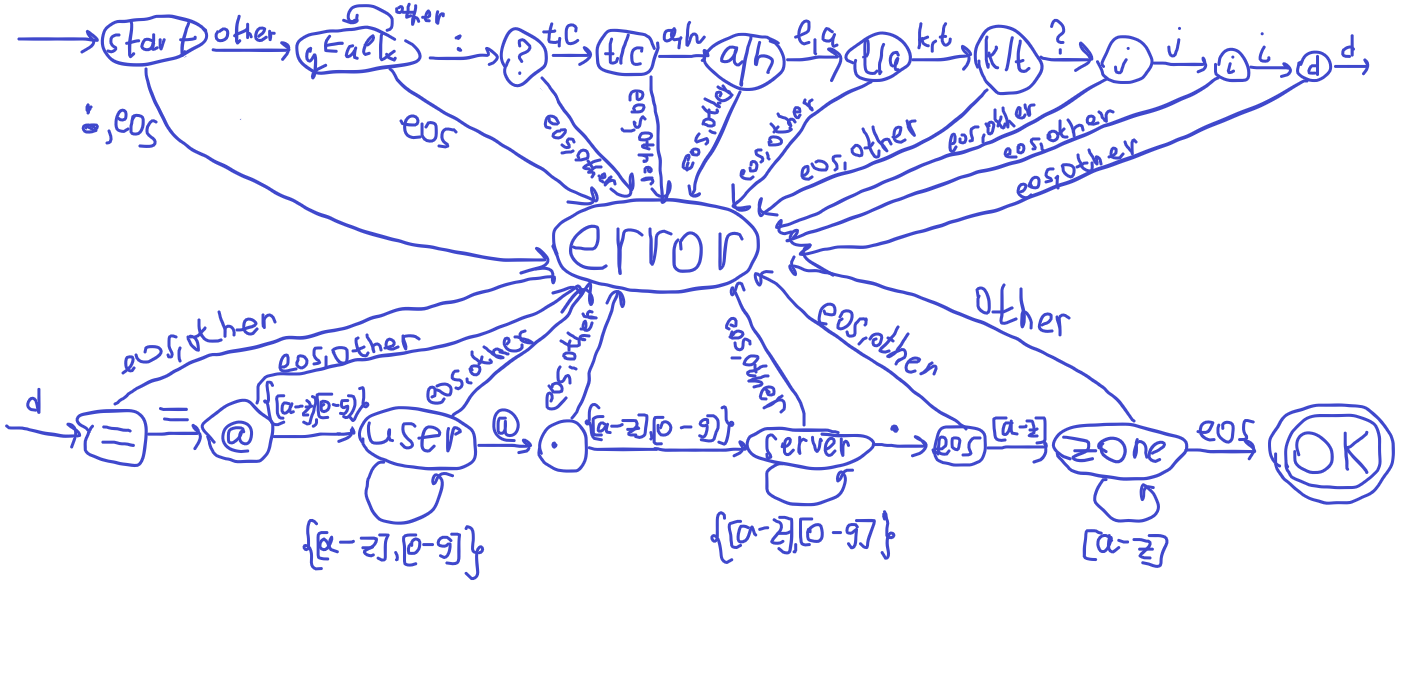 start other gtalk other : ? t,c t/c a,h a/h l,a l/a k,t k/t ? j j i i d d
:,eos eos eos,other eos,other eos,other eos,other eos,other eos,other eos,other eos,other
error
eos,other eos,other eos,other eos,other eos,other eos,other other
d = = @ {[a-z][0-9]} user @ . {[a-z],[0-9]} server . eos [a-z] zone eos OK
{[a-z],[0-9]} {[a-z],[0-9]} [a-z]